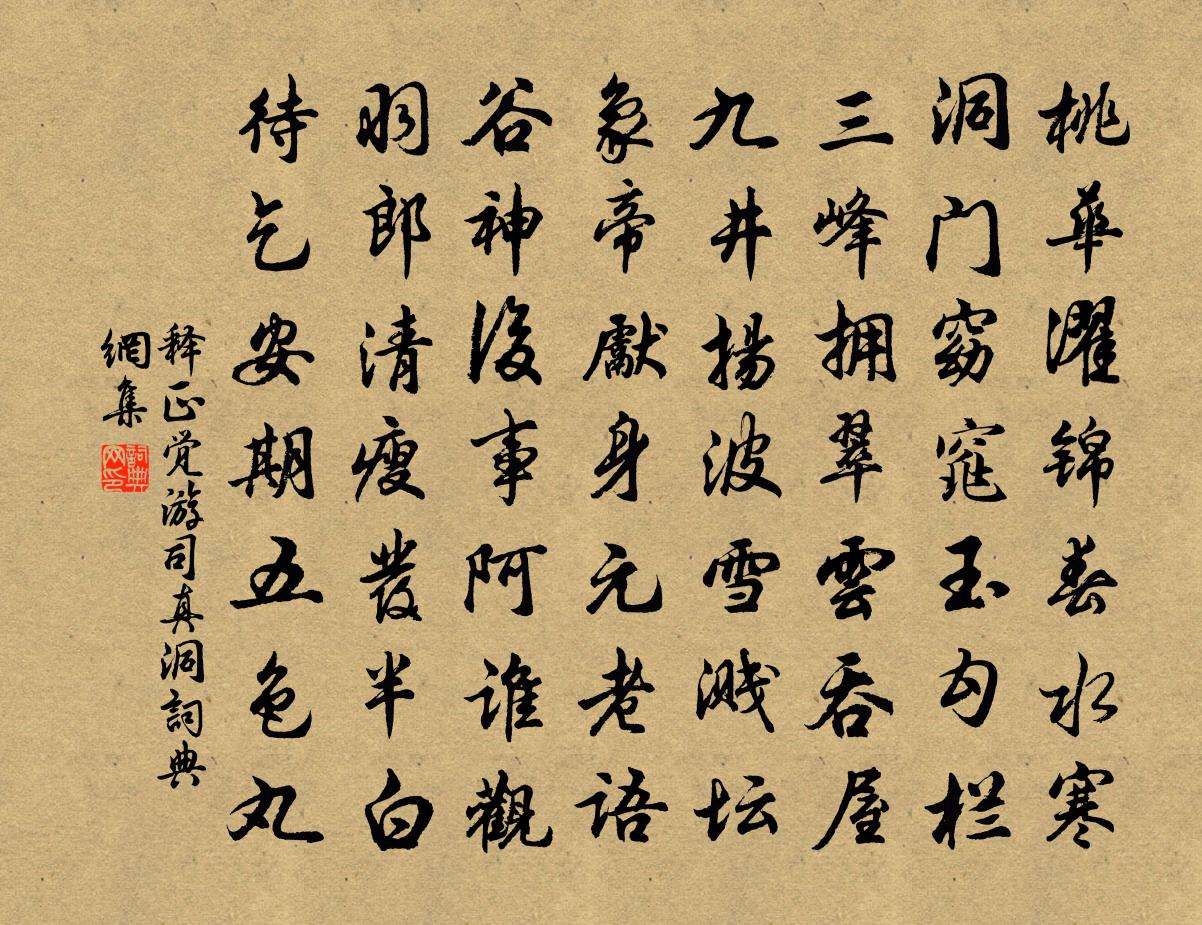 桃華濯锦春水寒
洞门窈窕玉勾栏
三峰拥翠雲吞屋
九井揚波雪溅坛
象帝獻身元老语
谷神没事阿谁觀
羽郎清瘦發半白
待乞安期五色丸
释正觉游司真洞詞典
網集
詞典
网印